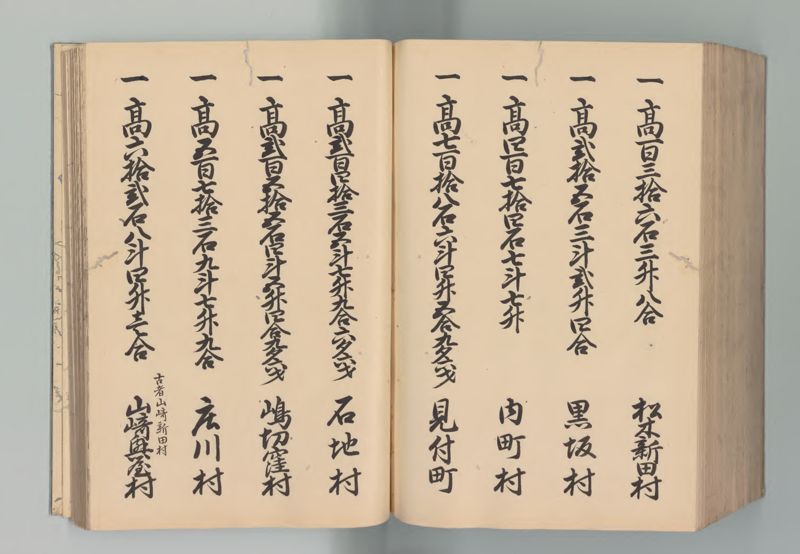 一 高百三拾六石三升八合 松木新田村
一 高弐拾五石三斗弐升四合 黒坂村
一 高四百七拾四石七斗七升 内町村
一 高七百拾八石六斗四升五合九夕六才 見付町
一 高弐百四拾三石五斗七升九合六夕六才 石地村
一 高弐百五拾五石四斗五升四合九夕六才 嶋切窪村
一 高五百七拾三石九斗七升九合 庄川村
一 高六拾弐石八斗四升壱合 山崎興屋村
古者山崎新田村